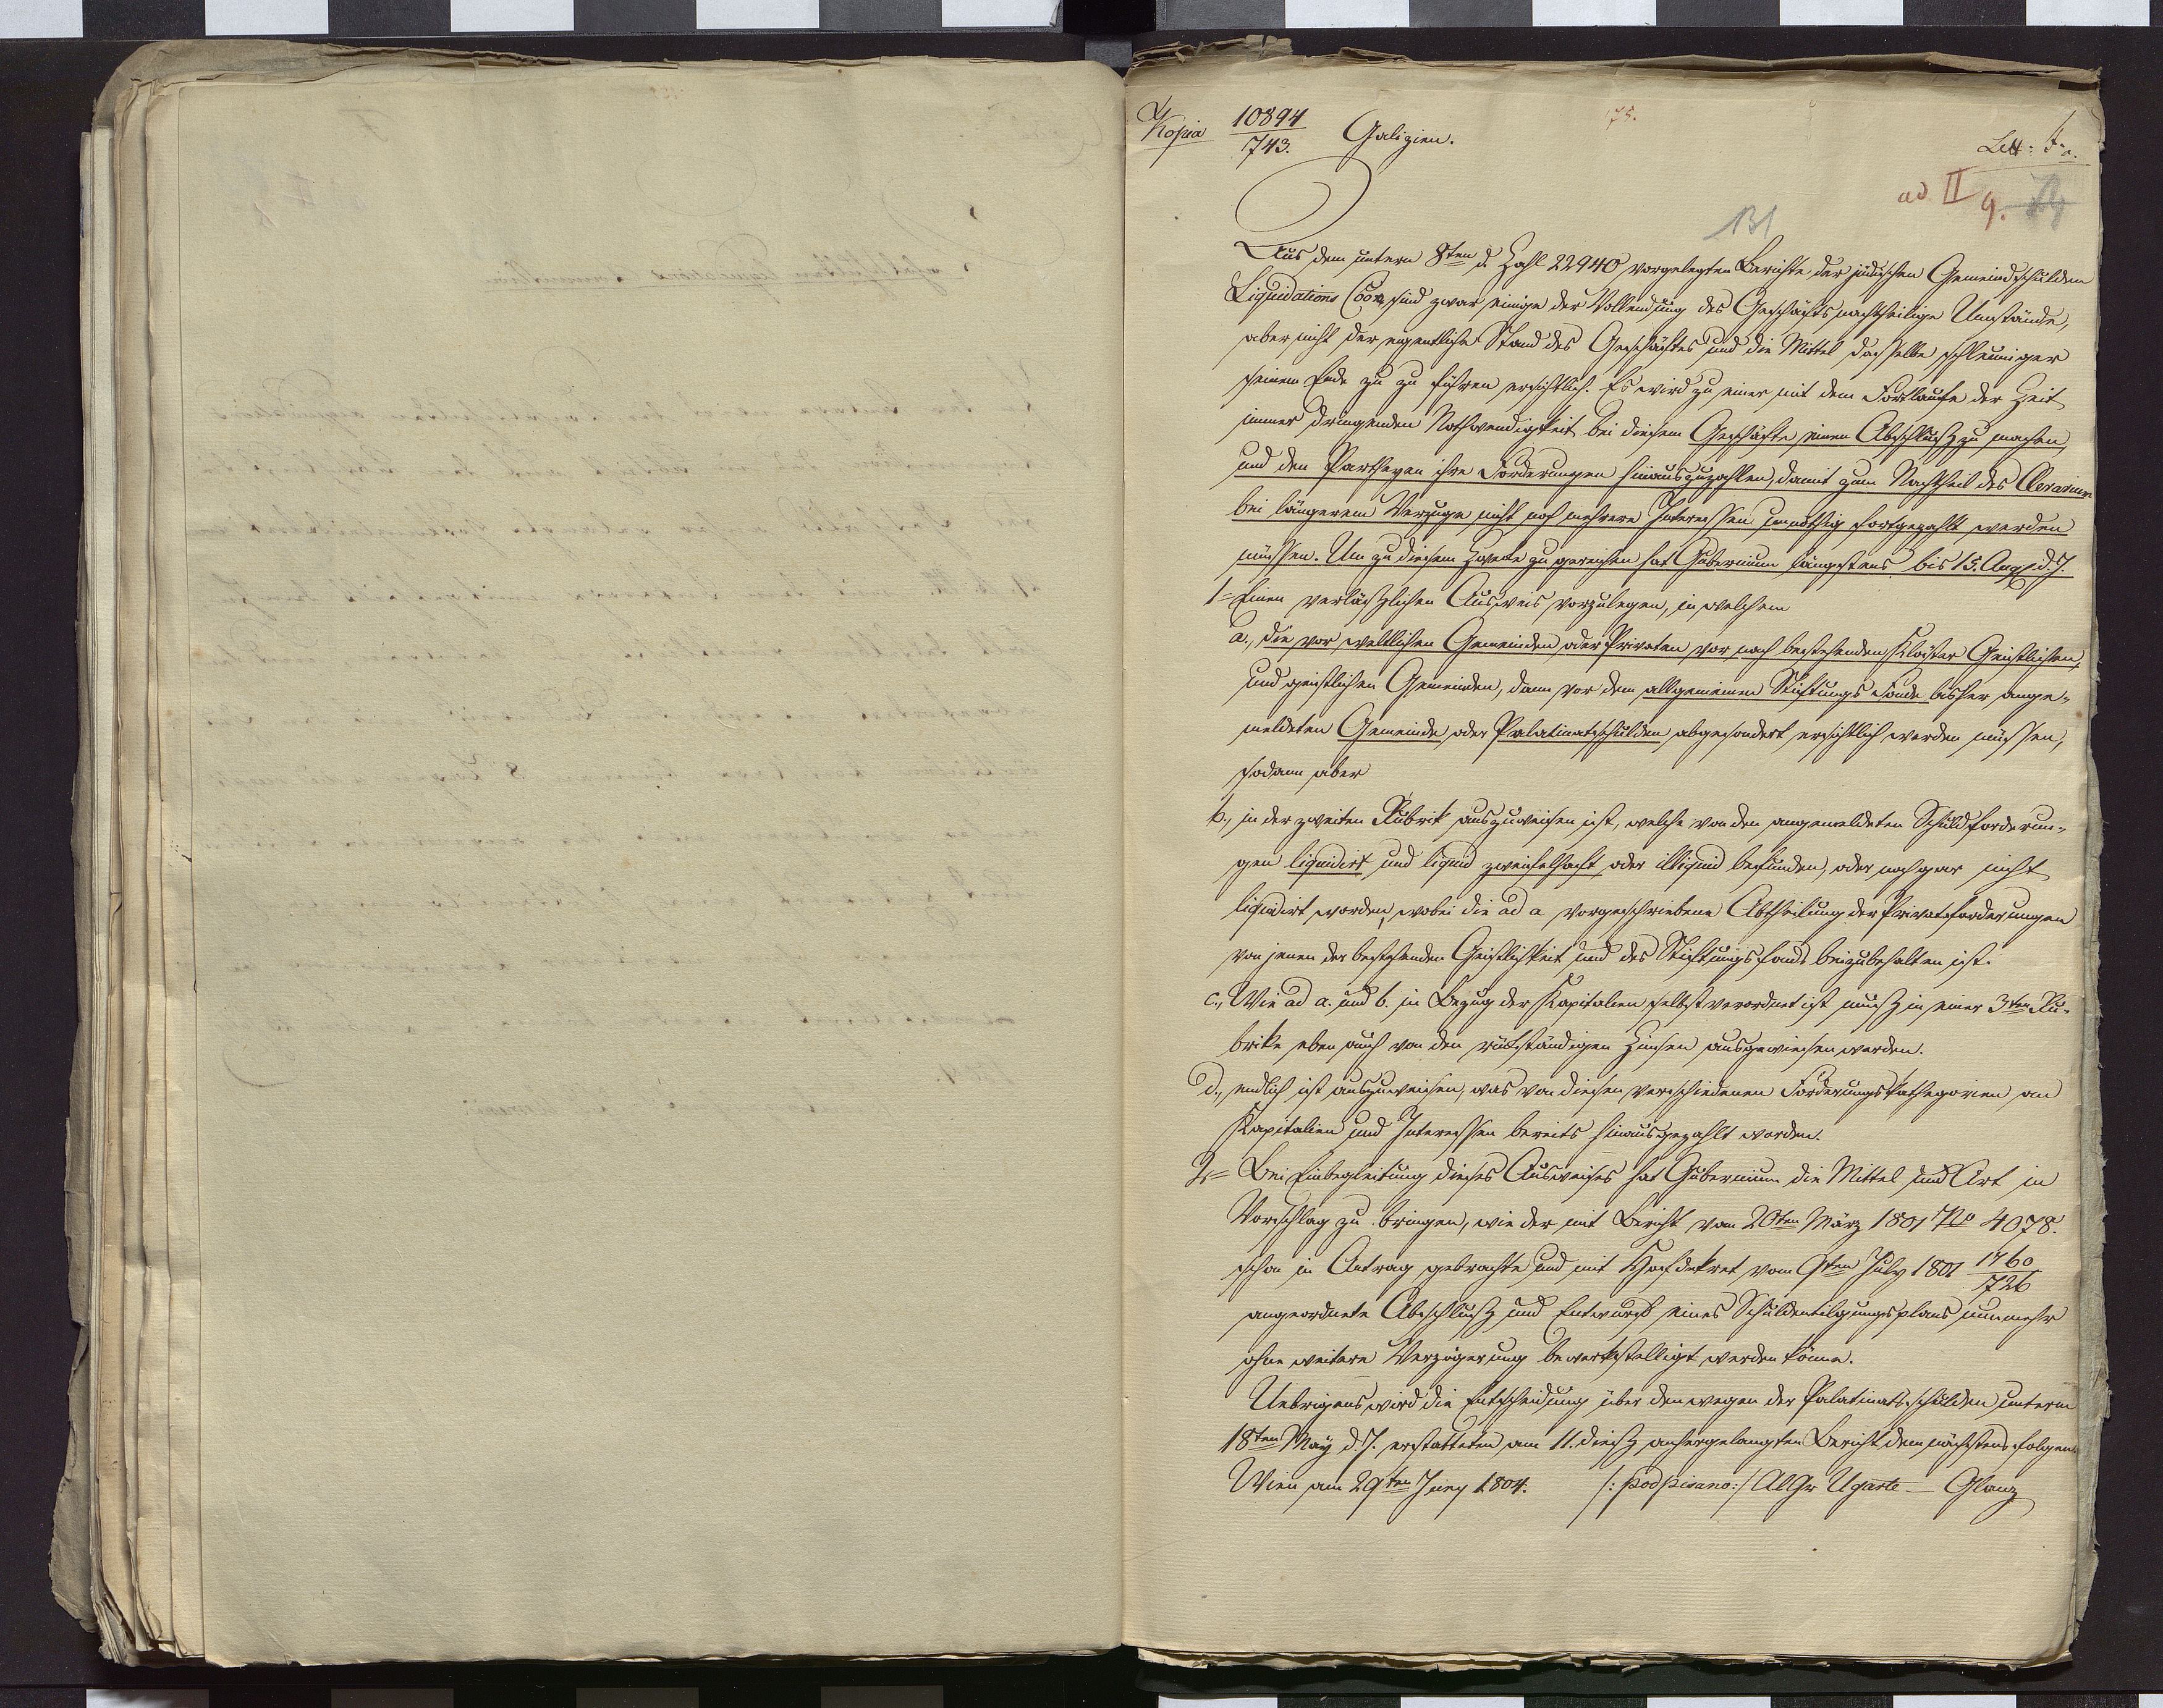 Kopia 10894/743. Galizien.
75.
Litt: F.a.
ad II 9.
131
Aus dem unterm 8ten d. Zahl 22940 vorgelegten Berichte der jüdischen Gemeindschulden
Liquidations Coon sind zwar einige der Vollendung des Geschäfts nachtheilige Umstände,
aber nicht der eigentliche Stand des Geschäftes und die Mittel dasselbe schleuniger
seinem Ende zu zu führen ersichtlich. Es wird zu einer mit dem Fortlaufe der Zeit
immer dringenden Nothwendigkeit bei diesem Geschäfte einen Abschluß zu machen,
und den Partheyen ihre Forderungen hinauszuzahlen, damit zum Nachtheil des Aerariums
bei längerem Verzuge nicht noch mehrere Interessen unnöthig fortgezahlt werden
müssen. Um zu diesem Zwecke zu gereichen hat Gubernium längstens bis 15. Aug. d. J.
1= Einen verläßlichen Ausweis vorzulegen, in welchem
a., die vor weltlichen Gemeinden oder Privaten vor noch bestehenden Kloster Geistlichen,
und geistlichen Gemeinden, dann vor dem allgemeinen Stiftungs Fonde bisher ange-
meldeten Gemeinde oder Palatinatschulden abgesondert ersichtlich werden müssen,
sodann aber
b., in der zweiten Rubrik auszuweisen ist, welche von den angemeldeten Schuldforderun-
gen liquidirt und liquid zweifelhaft oder illiquid befunden, oder noch gar nicht
liquidirt worden, wobei die ad a vorgeschriebene Abtheilung der Privatforderungen
von jenen der bestehenden Geistlichkeit und des Stiftungsfonds beizubehalten ist.
c., Wie ad a. und b. in Bezug der Kapitalien selbst verordnet ist muß in einer 3ten Ru-
brike eben auch von den rückständigen Zinsen ausgewiesen werden.
d., endlich ist auszuweisen, was von diesen verschiedenen Forderungs Kathegorien an
Kapitalien und Interessen bereits hinausgezahlt worden.
2= Bei Einbegleitung dieses Ausweises hat Gubernium die Mittel und Art in
Vorschlag zu bringen, wie der mit Bericht vom 20ten März 1801 No 4078.
schon in Antrag gebrachte und mit Hofdekret vom 9ten July 1801 1760/726
angeordnete Abschluß und Entwurf eines Schuldentilgungsplans nunmehr
ohne weitere Verzögerung bewerkstelligt werden könne.
Uebrigens wird die Entscheidung über den wegen der Palatinats schulden unterm
18ten May d. J. erstatteten am 11. dieß anhergelangten Bericht demnächstens folgen.
Wien am 29ten Juny 1804. /: podpisano :/ Al Gr Ugarte — Glanz